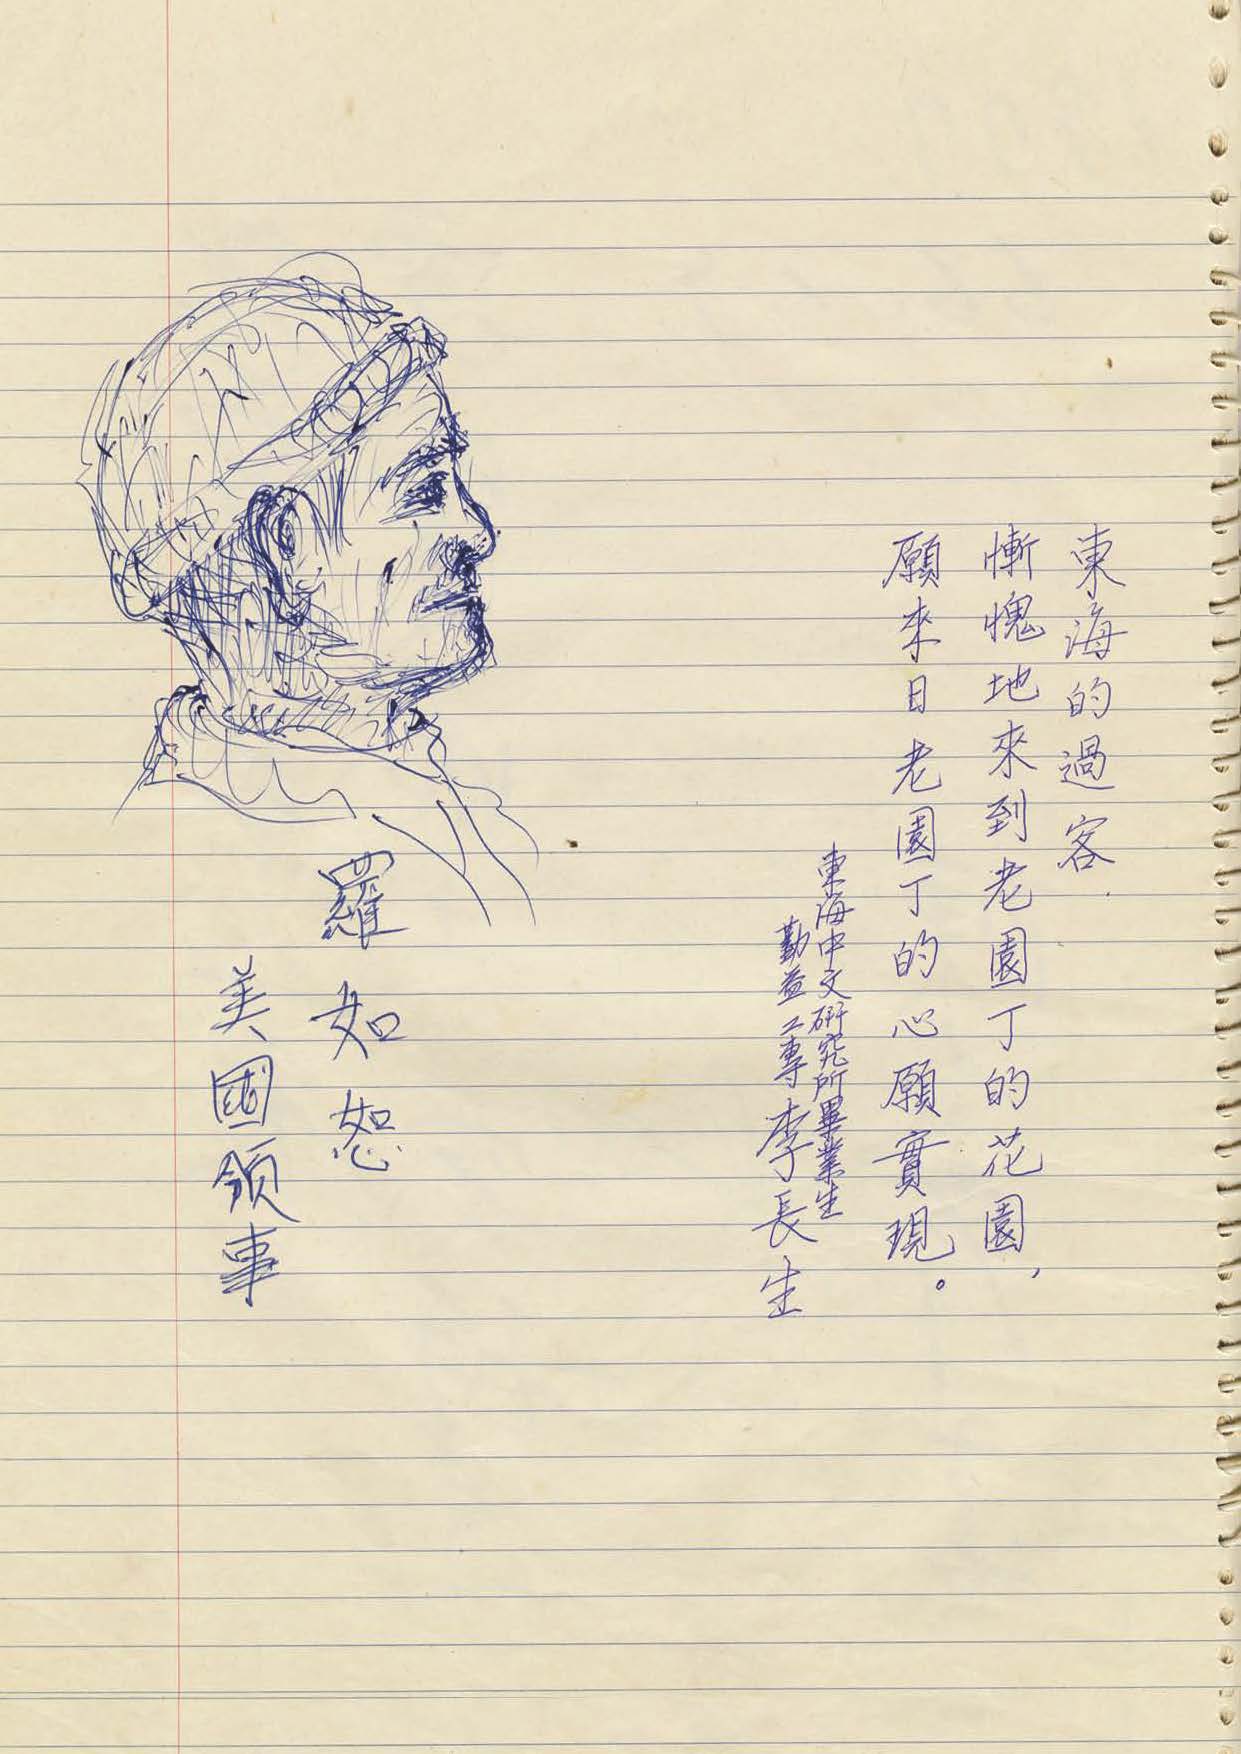 東海的過客.
慚愧地來到老園丁的花園，
願來日老園丁的心願實現。
東海中文研究所畢業生
勤益工專 李長生
羅如恕
美國領事